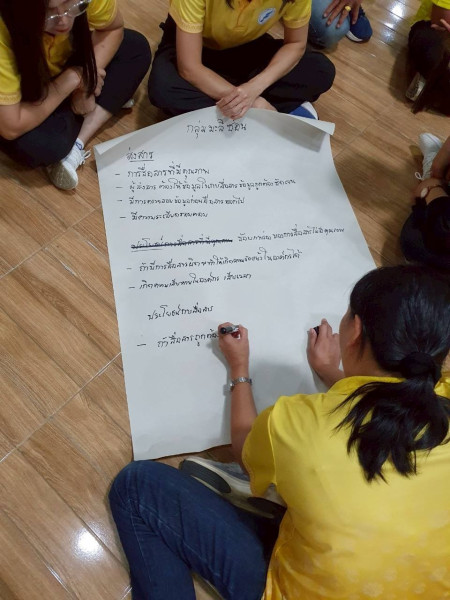 กลุ่ม มะลิซ้อน
ส่งสาร
- การสื่อสารที่มีคุณภาพ
- ผู้ส่งสาร ต้องให้ข้อมูลในการสื่อสาร ข้อมูลถูกต้อง ชัดเจน
- มีการตรวจสอบข้อมูลก่อนสื่อสารออกไป
- มีความละเอียดรอบคอบ
ข้อบกพร่อง ของการสื่อสารไม่มีคุณภาพ
- ถ้ามีการสื่อสารผิด ทำให้เกิดความขัดแย้งในองค์กรได้
- เกิดความเสียหายในองค์กร เสียเวลา
ประโยชน์การสื่อสาร
- ถ้าสื่อสารถูกต้อ